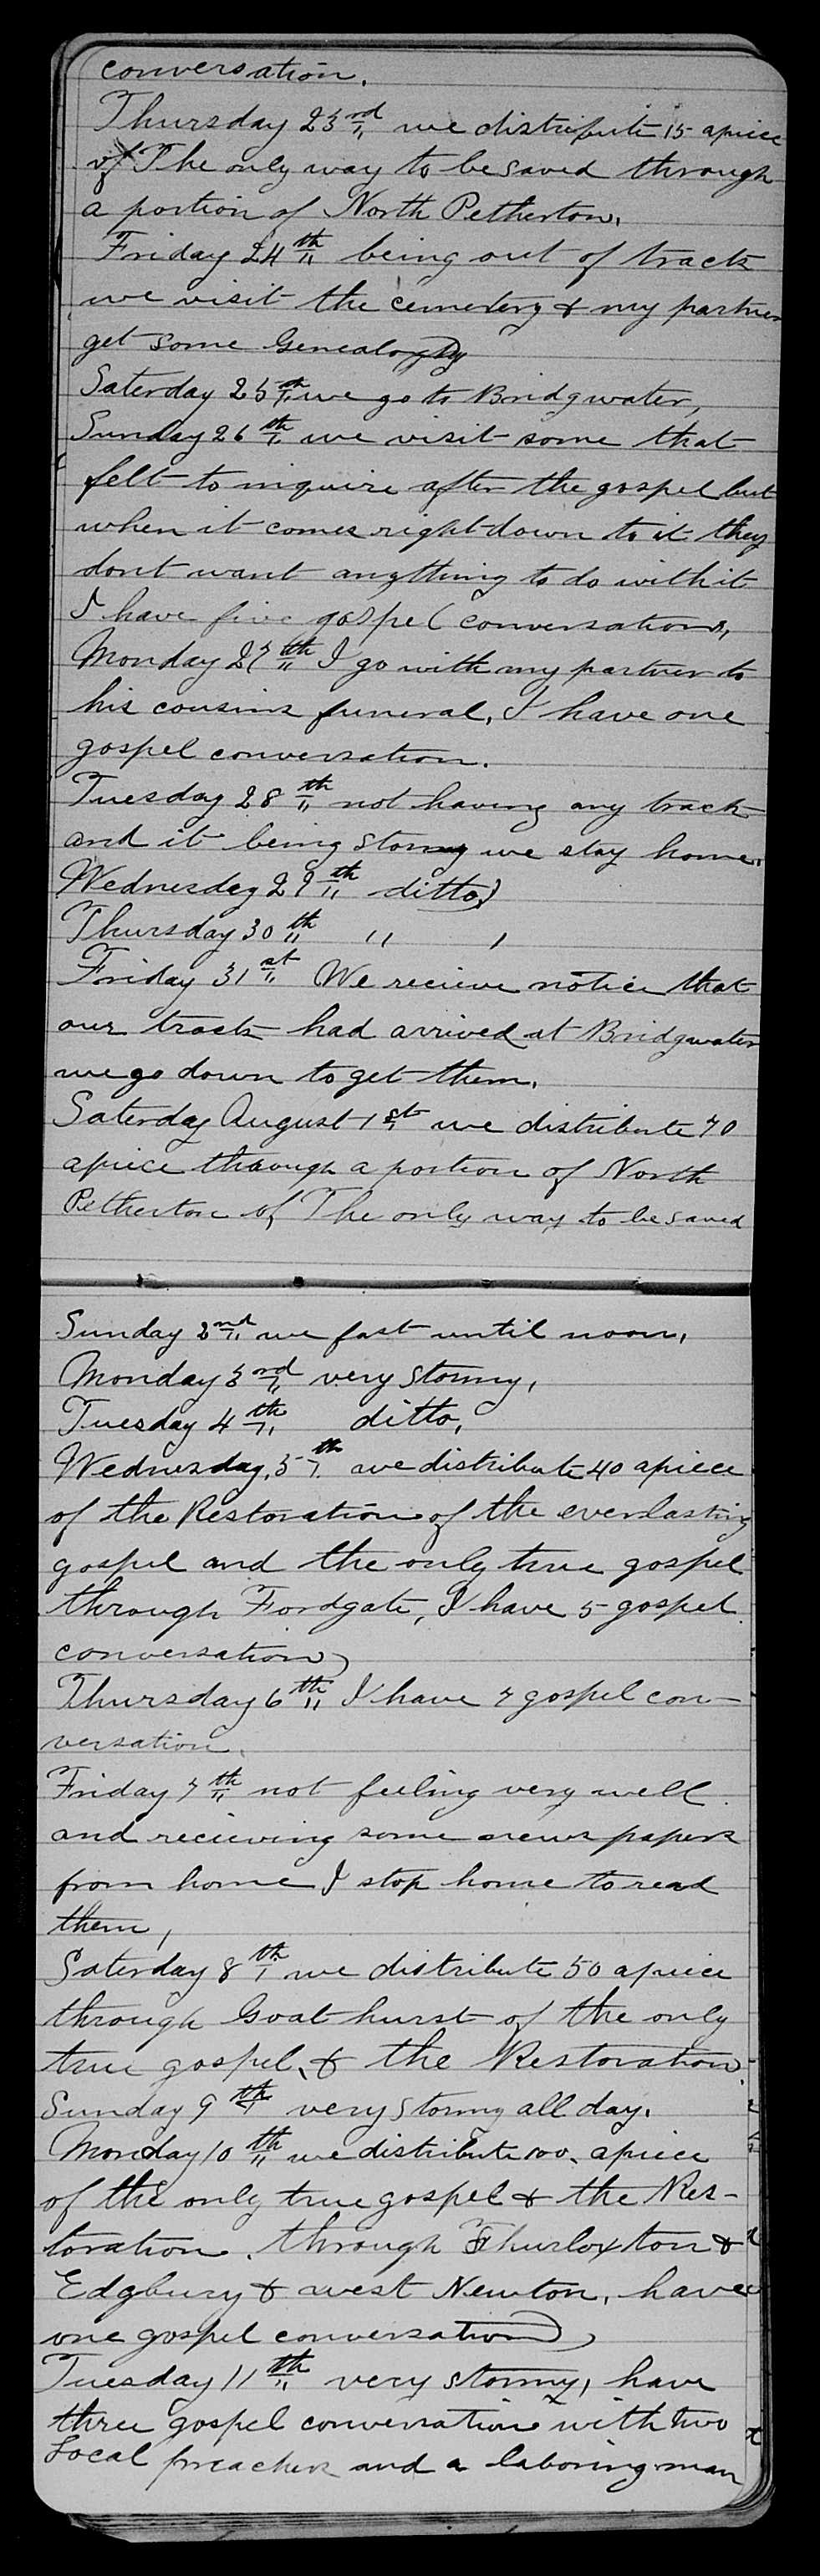 conversation.
Thursday 23rd we distribute 15 apiece
of The only way to be saved through
a portion of North Petherton.
Friday 24th being out of tracts
we visit the cemetery & my partner
get some Genealogy
Saterday 25th we go to Bridgwater,
Sunday 26th we visit some that
felt to inquire after the gospel but
when it comes right down to it they
dont want anything to do with it
I have five gospel conversations,
Monday 27th I go with my partner to
his cousins funeral, I have one
gospel conversation.
Tuesday 28th not having any tracts
and it being stormy we stay home.
Wednesdey 29th ditto
Thursday 30th " "
Friday 31st We recieve notice that
our tracts had arrived at Bridgwater
we go down to get them.
Saterday August 1st we distribute 70
apiece through a portion of North
Petherton of The only way to be saved
Sunday 2nd we fast until noon,
Monday 3rd very stormy,
Tuesday 4th ditto,
Wednesday, 5th we distribute 40 apiece
of the Restoration of the everlasting
gospel and the only true gospel
through Fordgate, I have 5 gospel
conversation
Thursday 6th I have 7 gospel con-
versation.
Friday 7th not feeling very well
and recieving some news papers
from home I stop home to read
them,
Saterday 8th we distribute 50 apiece
through Goat hurst of the only
true gospel, & the Restoration.
Sunday 9th very stormy all day.
Monday 10th we distribute 100. apiece
of the only true gospel & the Res-
toration. through Thurloxton &
Edgbury & west Newton, have
one gospel conversation,
Tuesday 11th very stormy, have
three gospel conversations with two
Local preachers and a laboring man